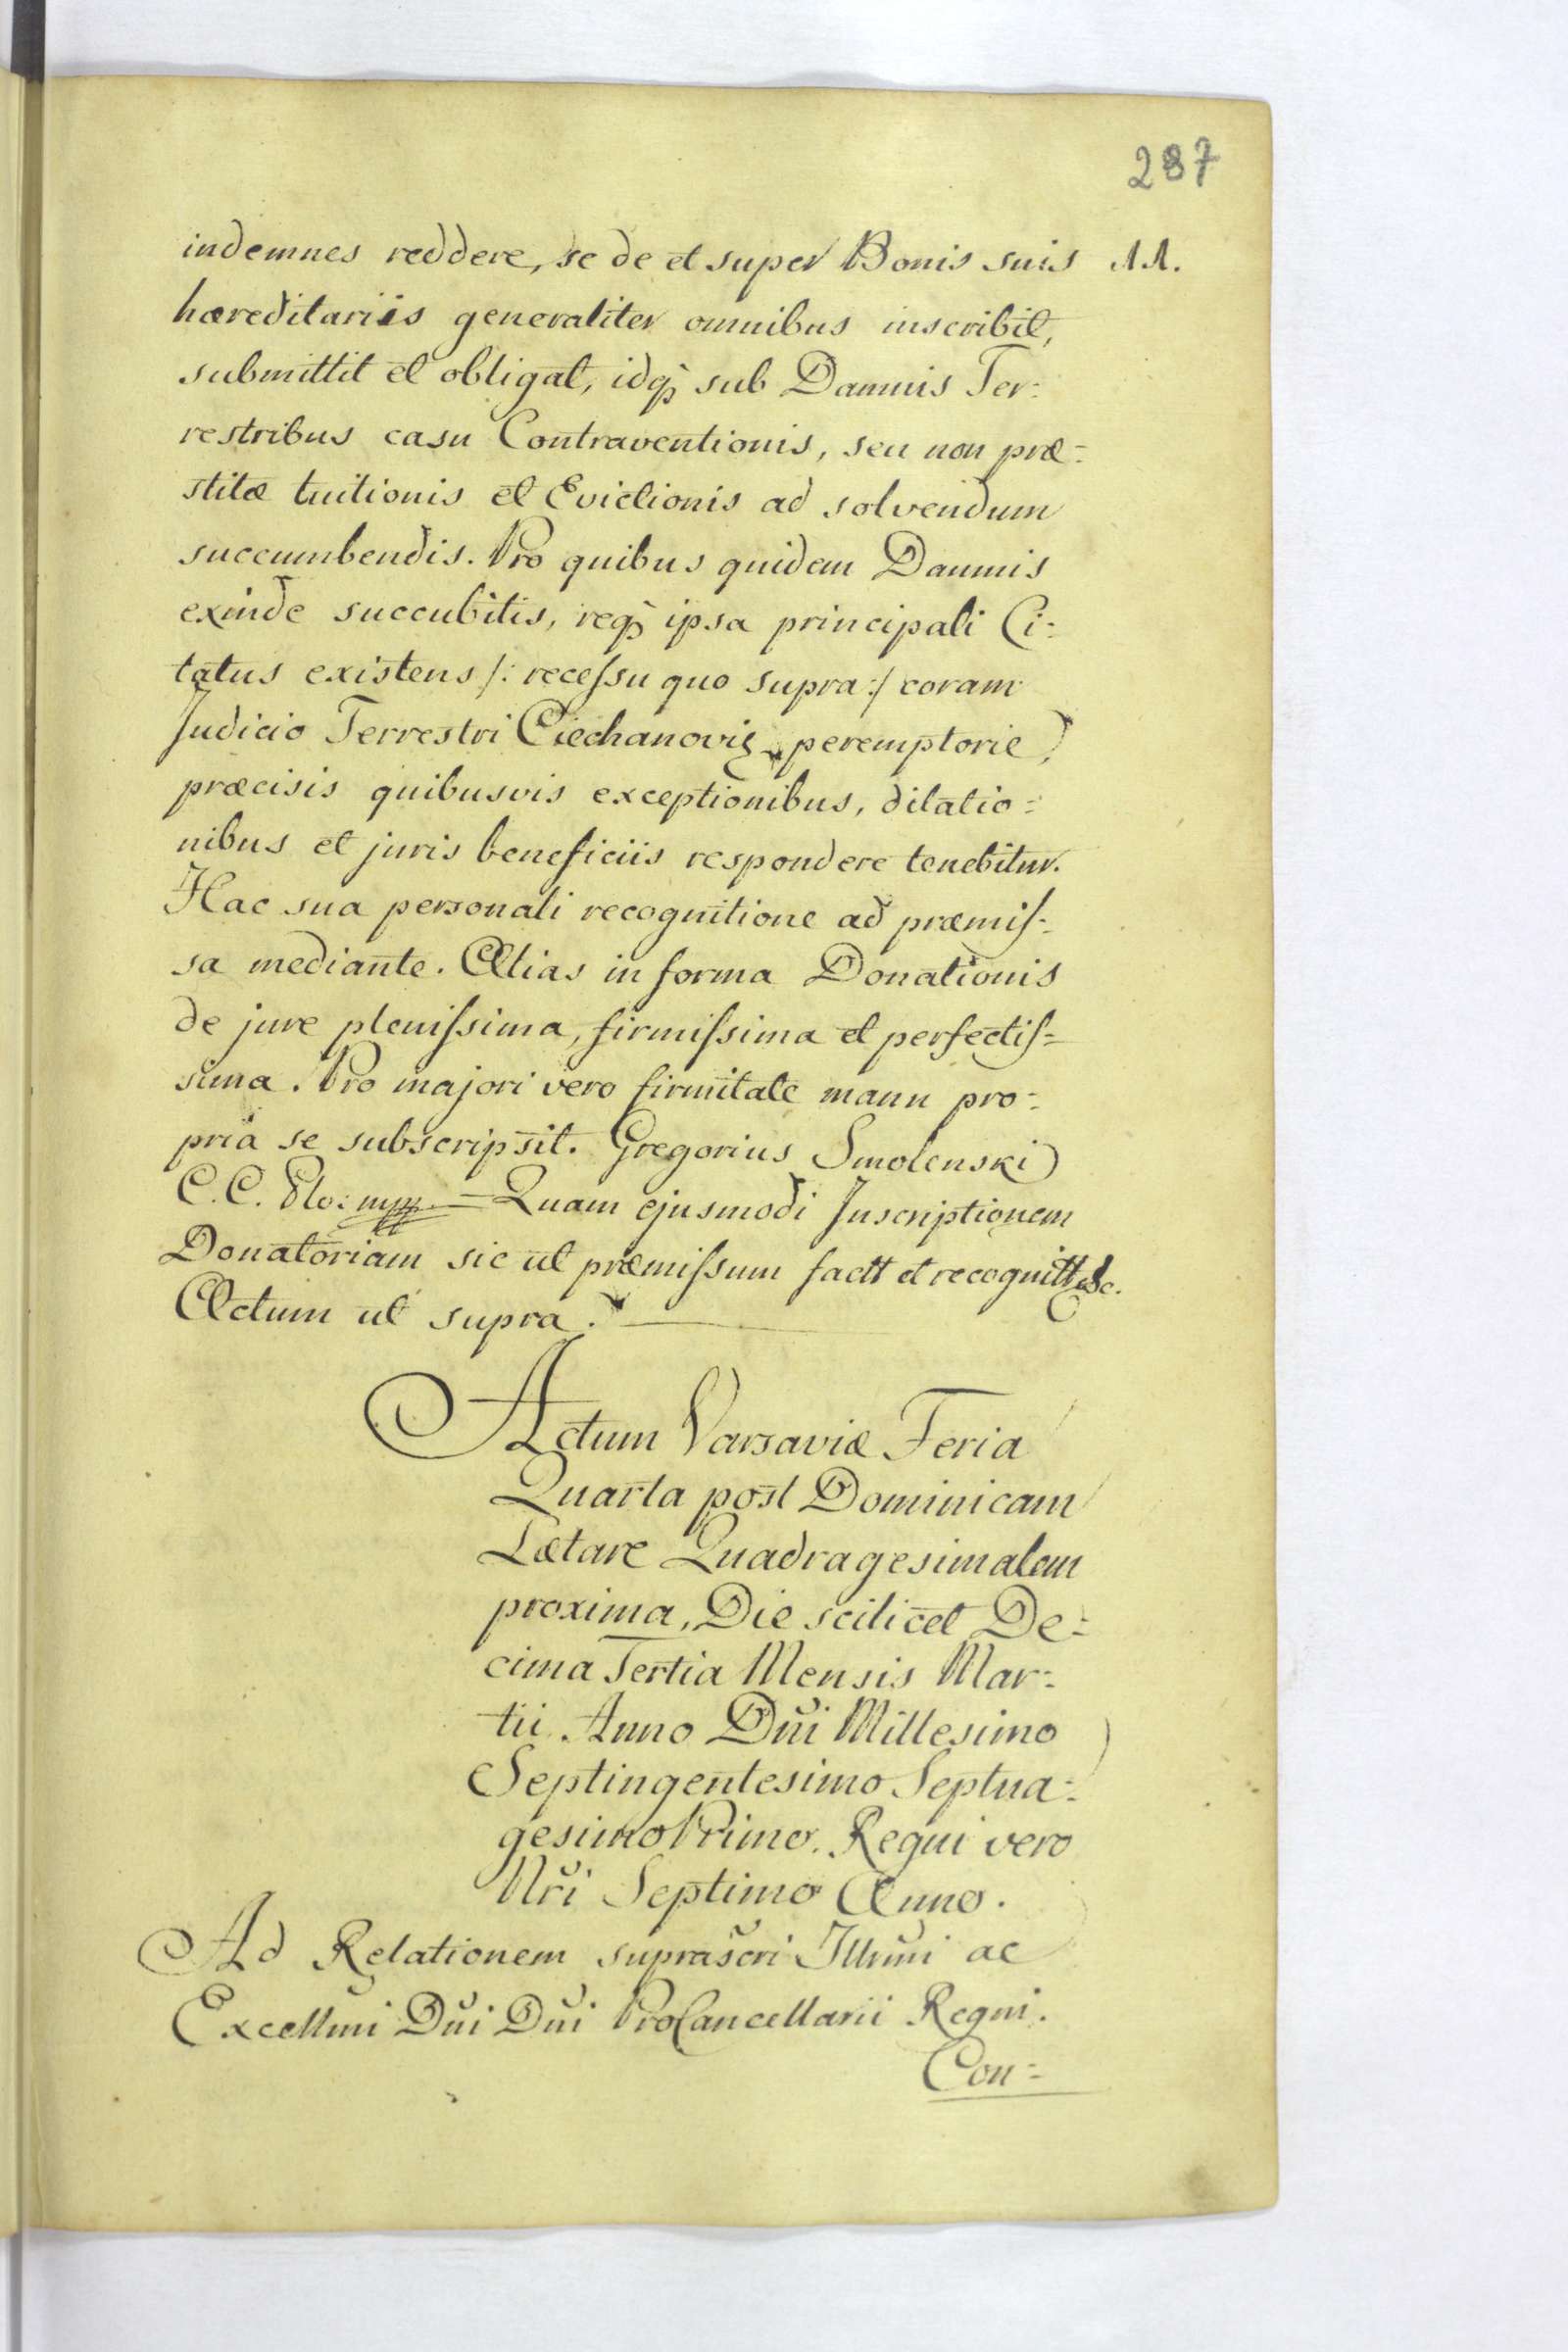 287
indemnes reddere, se de et super Bonis suis 11.
hæreditariis generaliter omnibus inscribit,
submittit et obligat, idq; sub Damnis Ter-
restribus casu Contraventionis, seu non præ-
stitæ tuitionis et Evictionis ad solvendum
succumbendis. Pro quibus quidem Damnis
exinde succubitis, req; ipsa principali Ci-
tatus existens /: recessu quo supra :/ coram
Judicio Terrestri Ciechanovię peremptorie,
præcisis quibusvis exceptionibus, dilatio-
nibus et juris beneficiis respondere tenebitur.
Hac sua personali recognitione ad præmis-
sa mediante. Alias in forma Donationis
de jure plenissima, firmissima et perfectis-
sima. Pro majori vero firmitate manu pro-
pria se subscripsit. Gregorius Smolenski
C. C. Plo: mpp. = Quam ejusmodi Inscriptionem
Donatoriam sic ut præmissum factt et recognitt &c.
Actum ut supra.
Actum Varsaviæ Feria
Quarta post Dominicam
Lætare Quadragesimalem
proxima, Die scilicet De-
cima Tertia Mensis Mar-
tii Anno Dni Millesimo
Septingentesimo Septua-
gesimo Primo. Regni vero
Nri Septimo Anno.
Ad Relationem suprascri Illrmi ac
Excellmi Dni Dni ProCancellarii Regni.
Con-